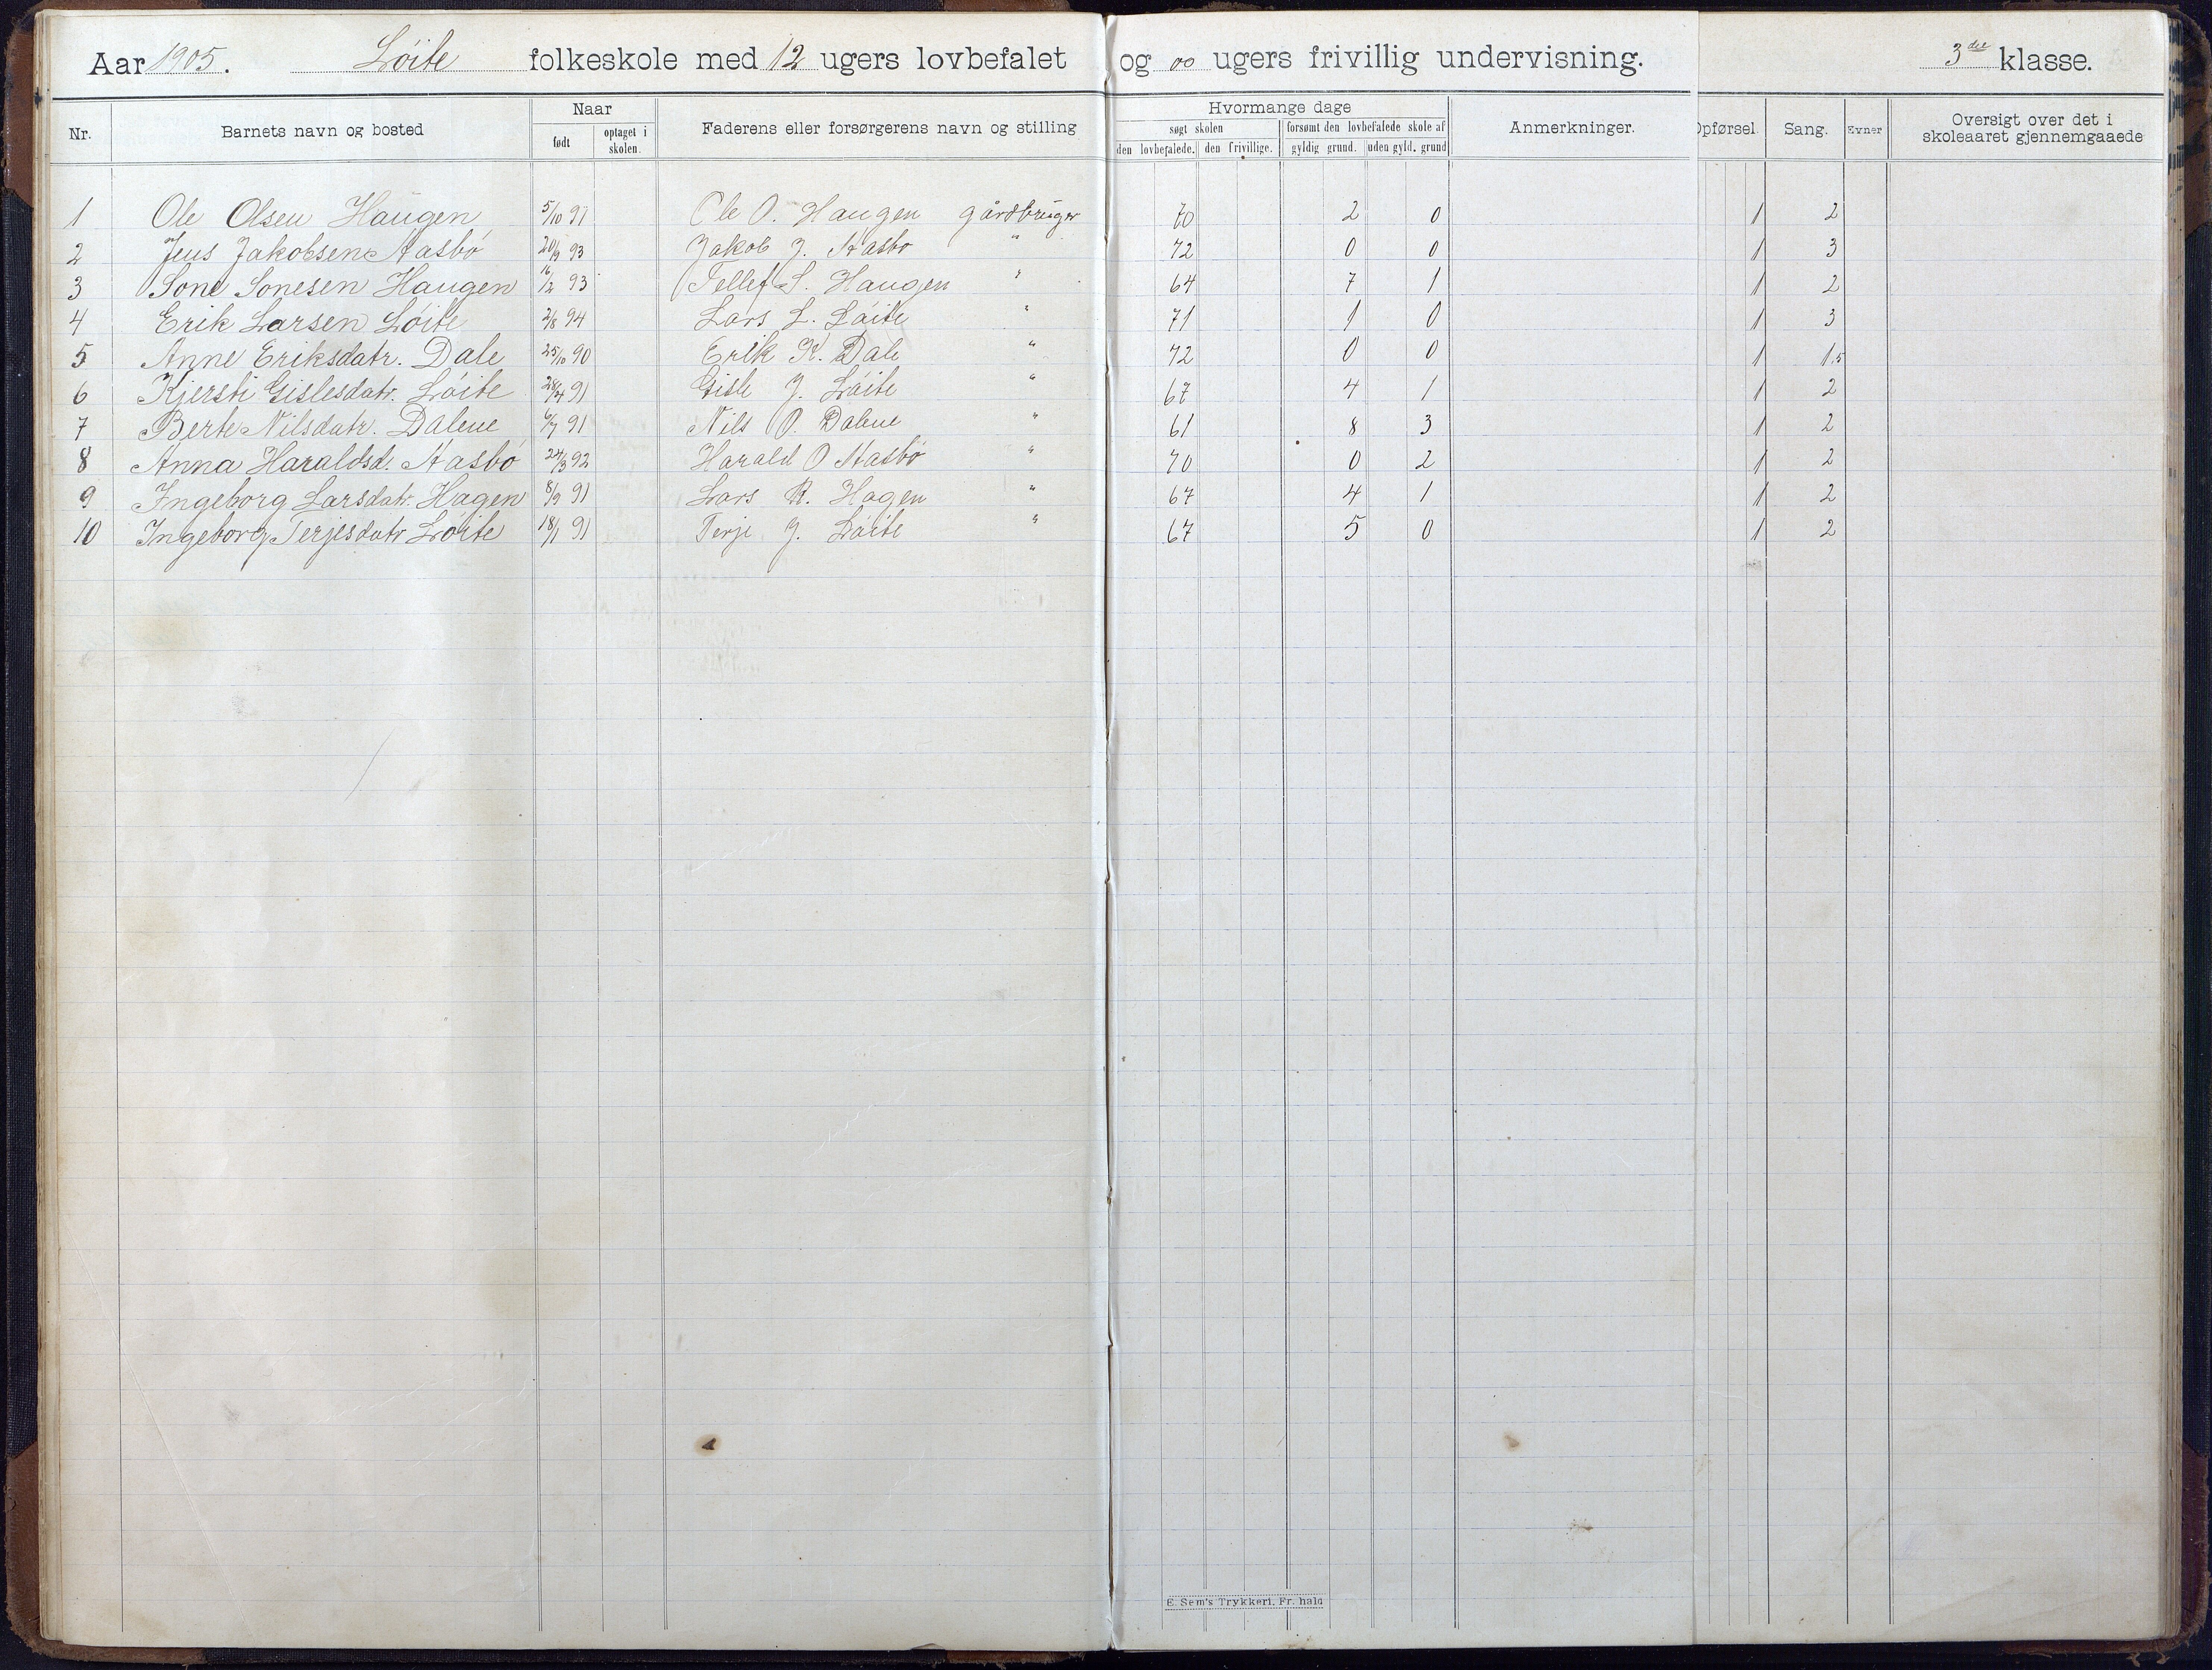 Aar 1905. Löite folkeskole med 12 ugers lovbefalet og 00 ugers frivillig undervisning. 3die klasse.
Nr. Barnets navn og bosted Naar Faderens eller forsørgerens navn og stilling Hvormange dage Anmerkninger. Opførsel. Sang. Evner Oversigt over det i skoleaaret gjennemgaaede
født optaget i skolen. søgt skolen forsømt den lovbefalede skole af
den lovbefalede. den frivillige. gyldig grund. uden gyld. grund
1 Ole Olsen Haugen 5/10 91 Ole O. Haugen gårdbruger 70 2 0 1 2
2 Jens Jakobsen Aasbö 20/9 93 Jakob J. Aasbö " 72 0 0 1 3
3 Sone Sonesen Haugen 16/2 93 Tellef S. Haugen " 64 7 1 1 2
4 Erik Larsen Löite 2/8 94 Lars L. Löite " 71 1 0 1 3
5 Anne Eriksdatr. Dale 25/10 90 Erik K. Dale " 72 0 0 1 1,5
6 Kjersti Gislesdatr. Löite 28/4 91 Gisle J. Löite " 67 4 1 1 2
7 Berte Nilsdatr. Dalene 6/7 91 Nils O. Dalene " 61 8 3 1 2
8 Anna Haraldsd. Aasbö 24/3 92 Harald O Aasbö " 70 0 2 1 2
9 Ingeborg Larsdatr. Hagen 8/9 91 Lars R. Hagen " 67 4 1 1 2
10 Ingeborg Terjesdatr Löite 18/1 91 Terje J. Löite " 67 5 0 1 2
E. Sem's Trykkeri, Fr. hald